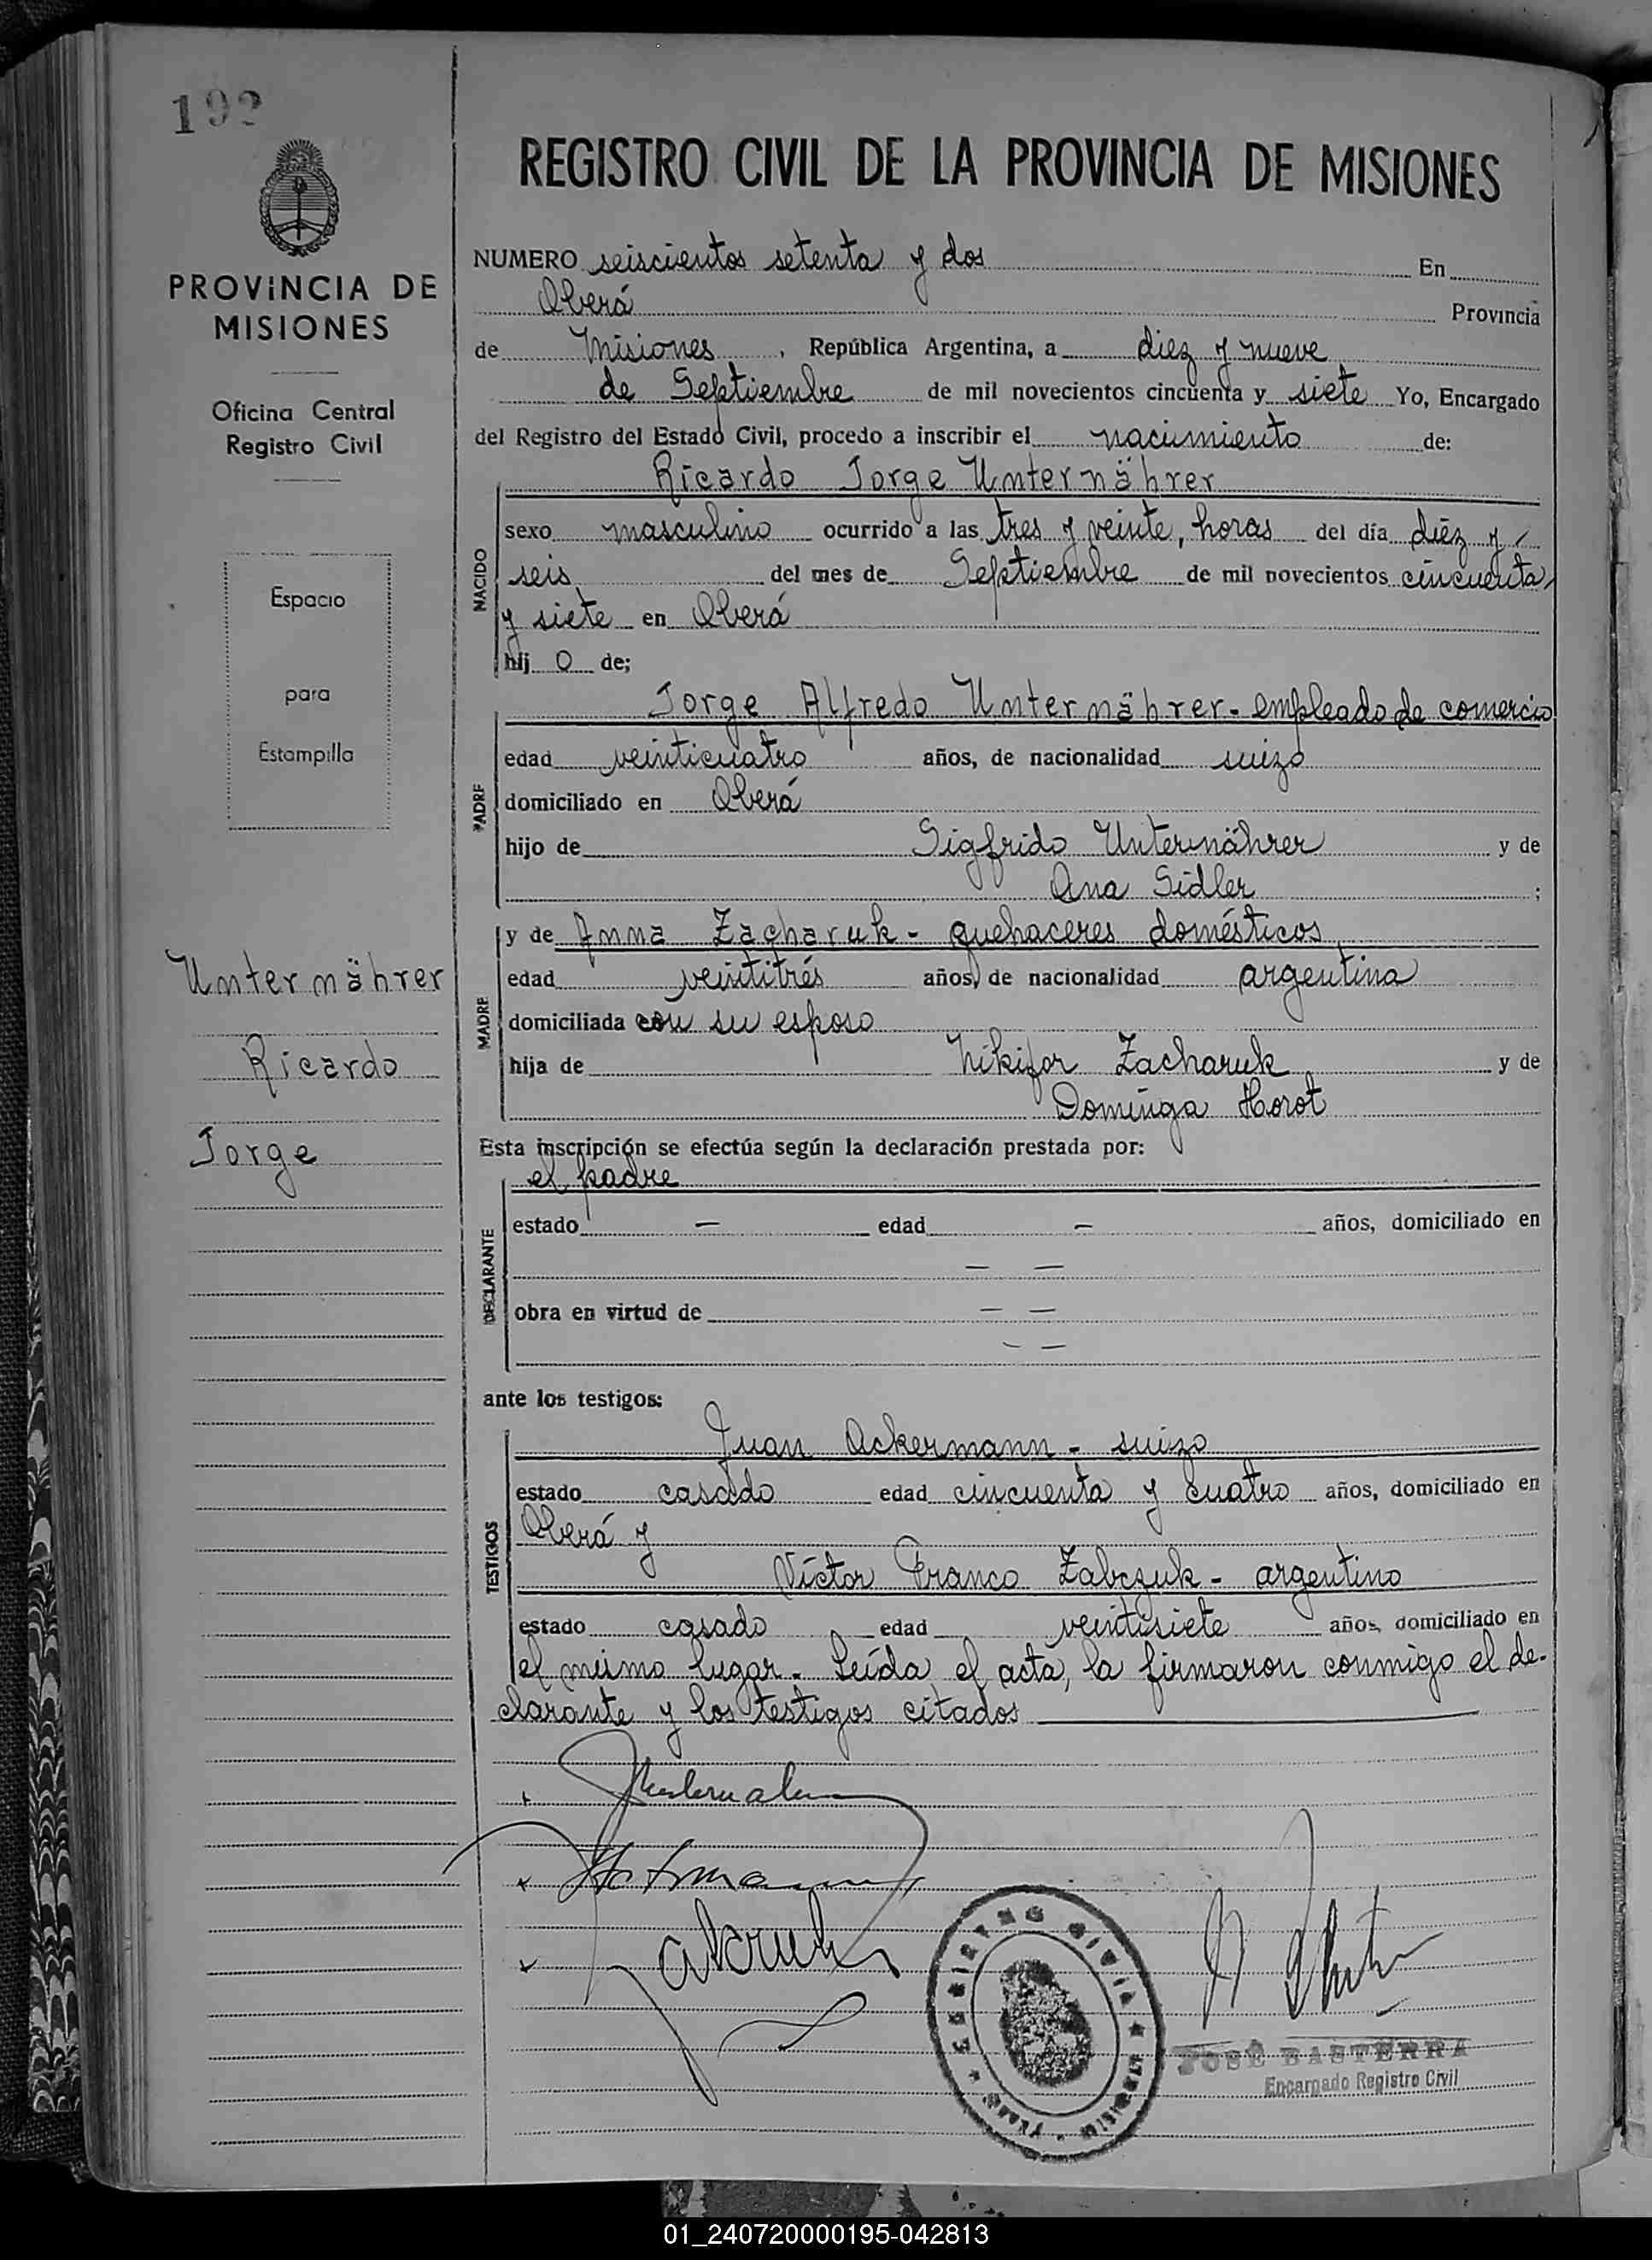 192
PROVINCIA DE
MISIONES
Oficina Central
Registro Civil
Espacio
para
Estampilla
Unternährer
Ricardo
Jorge
REGISTRO CIVIL DE LA PROVINCIA DE MISIONES
NUMERO seiscientos setenta y dos En
Oberá Provincia
de Misiones, República Argentina, a diez y nueve
de Septiembre de mil novecientos cincuenta y siete Yo, Encargado
del Registro del Estado Civil, procedo a inscribir el nacimiento de:
Ricardo Jorge Unternährer
NACIDO
sexo masculino ocurrido a las tres y veinte, horas del día diez y
seis del mes de Septiembre de mil novecientos cincuenta
y siete en Oberá
hij o de;
Jorge Alfredo Unternährer - empleado de comercio
PADRE
edad veinticuatro años, de nacionalidad suizo
domiciliado en Oberá
hijo de Sigfrido Unternährer y de
Ana Sidler ;
y de Anna Zacharuk - quehaceres domésticos
MADRE
edad veintitrés años, de nacionalidad argentina
domiciliada con su esposo
hija de Nikifor Zacharuk y de
Dominga Horot
Esta inscripción se efectúa según la declaración prestada por:
el padre
DECLARANTE
estado — edad — años, domiciliado en
— —
obra en virtud de — —
— —
ante los testigos:
Juan Ackermann - suizo
TESTIGOS
estado casado edad cincuenta y cuatro años, domiciliado en
Oberá y
Víctor Franco Zabczuk - argentino
estado casado edad veintisiete años, domiciliado en
el mismo lugar. Leída el acta, la firmaron conmigo el de-
clarante y los testigos citados
REGISTRO CIVIL
JOSÉ BASTERRA
Encargado Registro Civil
01_240720000195-042813